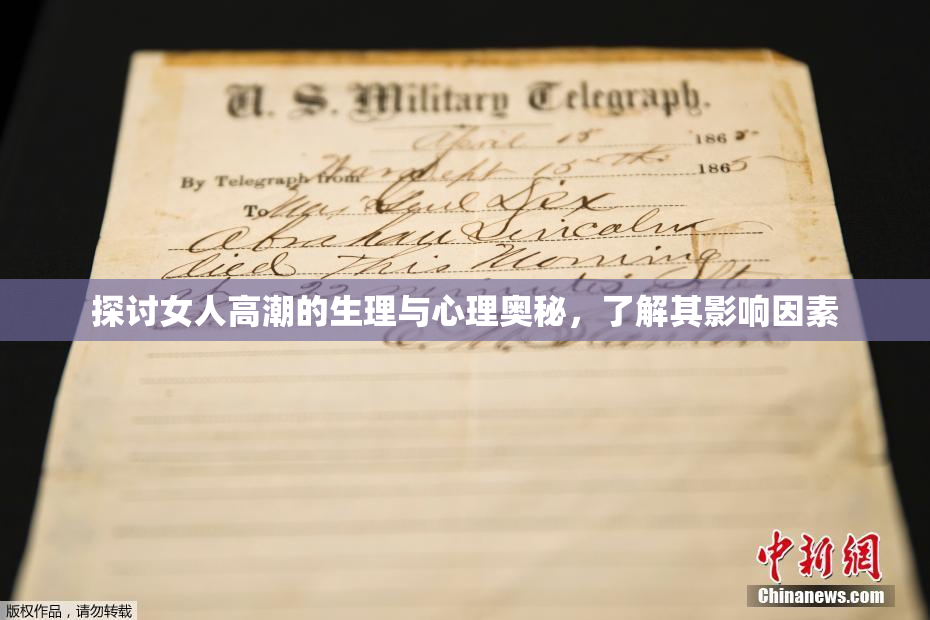 U. S. Military Telegraph.
April 15 1865
By Telegraph from War Dept 15th 1865
To Maj Genl Dix
Abraham Lincoln
died This Morning
at 22 minutes after
探讨女人高潮的生理与心理奥秘，了解其影响因素
E. M. Stanton
中新网
Chinanews.com
版权作品，请勿转载